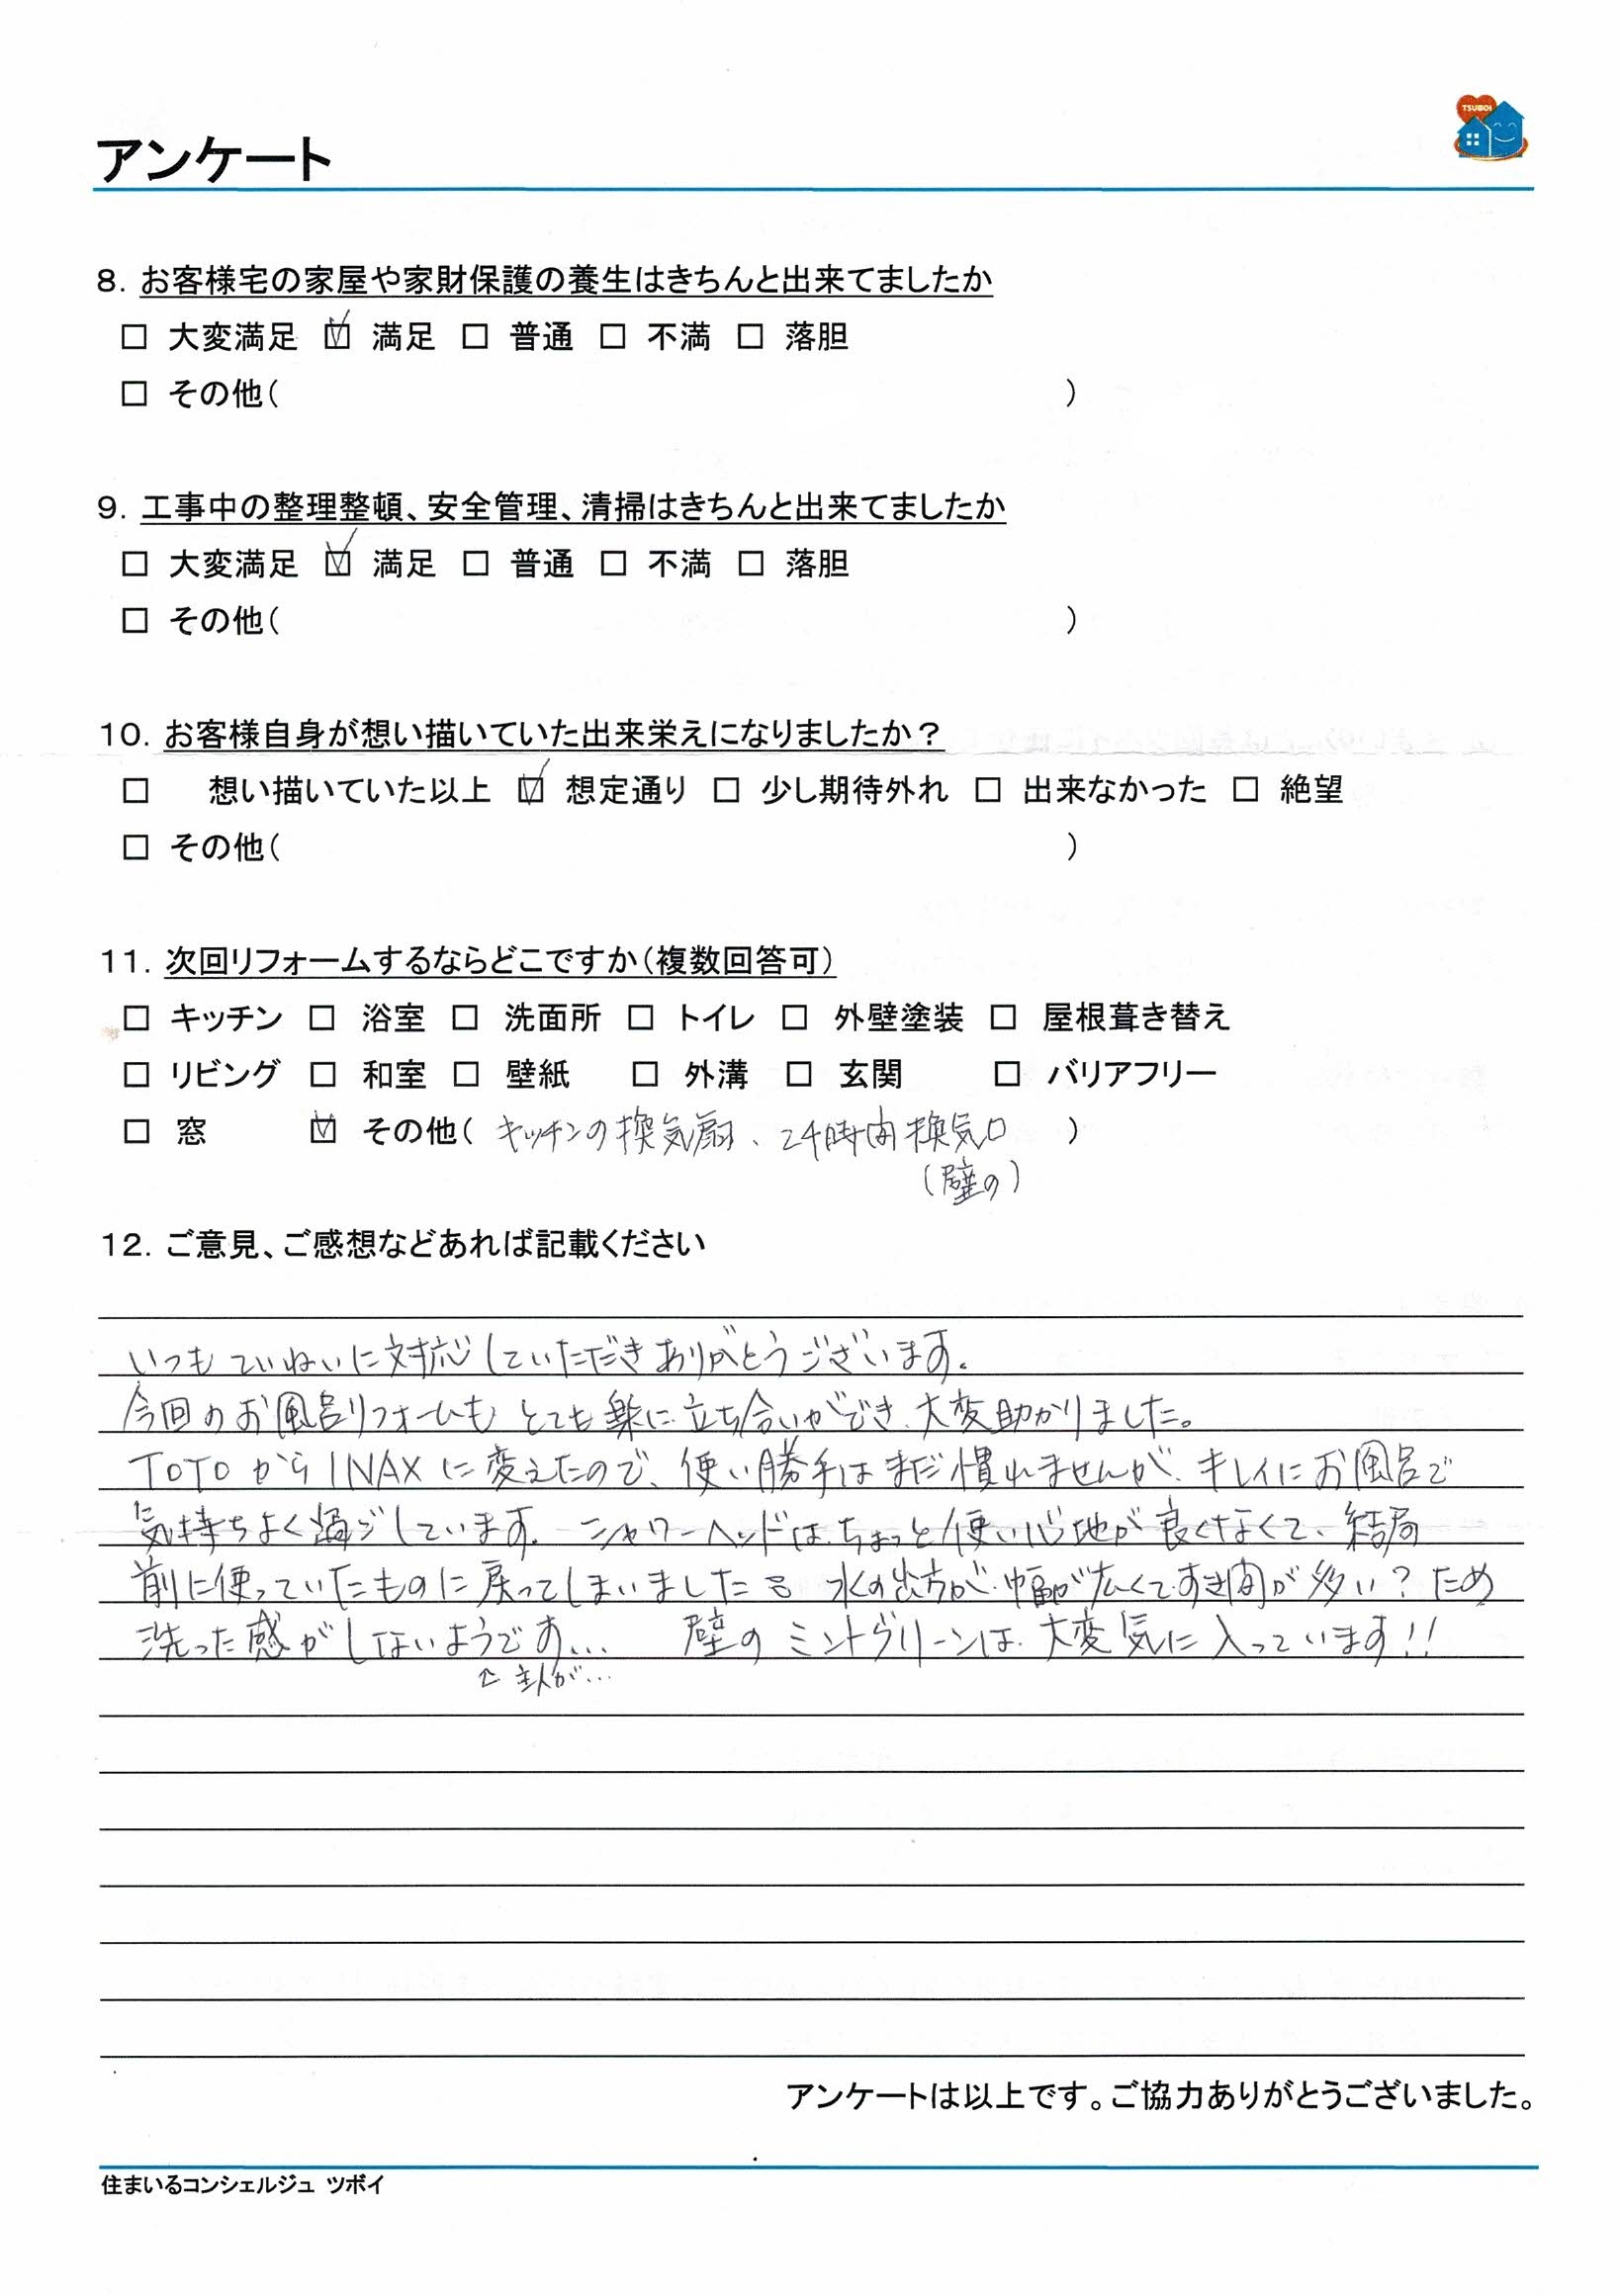 TSUBOI
アンケート
8. お客様宅の家屋や家財保護の養生はきちんと出来てましたか
□ 大変満足 ☑ 満足 □ 普通 □ 不満 □ 落胆
□ その他( )
9. 工事中の整理整頓、安全管理、清掃はきちんと出来てましたか
□ 大変満足 ☑ 満足 □ 普通 □ 不満 □ 落胆
□ その他( )
10. お客様自身が想い描いていた出来栄えになりましたか?
□ 想い描いていた以上 ☑ 想定通り □ 少し期待外れ □ 出来なかった □ 絶望
□ その他( )
11. 次回リフォームするならどこですか(複数回答可)
□ キッチン □ 浴室 □ 洗面所 □ トイレ □ 外壁塗装 □ 屋根葺き替え
□ リビング □ 和室 □ 壁紙 □ 外溝 □ 玄関 □ バリアフリー
□ 窓 ☑ その他( キッチンの換気扇、24時間換気口 )
(壁の)
12. ご意見、ご感想などあれば記載ください
いつもていねいに対応していただきありがとうございます。
今回のお風呂リフォームもとても楽に立ち合いができ、大変助かりました。
TOTOからINAXに変えたので、使い勝手はまだ慣れませんが、キレイにお風呂で
気持ちよく過ごしています。シャワーヘッドは、ちょっと使い心地が良くなくて、結局
前に使っていたものに戻ってしまいました 水の出方が、幅が広くてすき間が多い?ため
洗った感がしないようです... 壁のミントグリーンは、大変気に入っています!!
主人が...
アンケートは以上です。ご協力ありがとうございました。
住まいるコンシェルジュ ツボイ